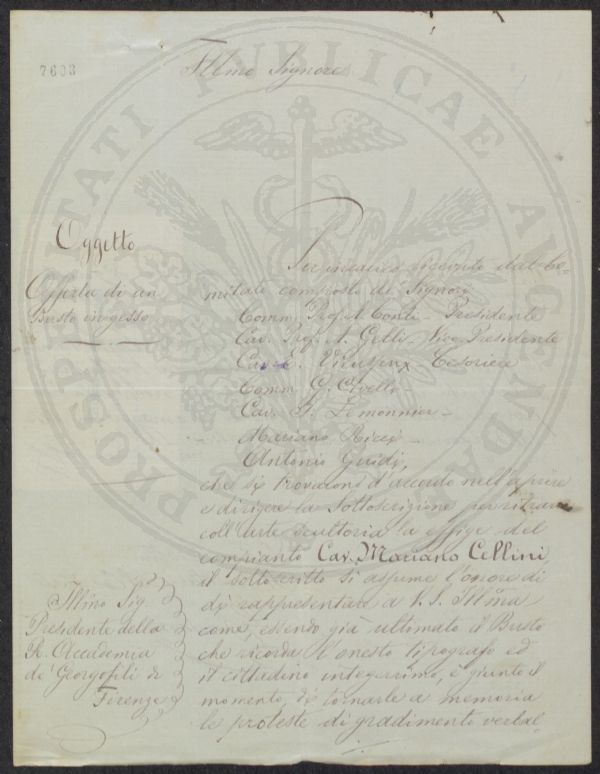 7608
Illmo Signore
Oggetto
Offerta di un
Busto in gesso
Per incarico ricevuto dal Co-
mitato composto de' Signori
Comm. Prof. A. Conti - Presidente
Cav. Prof. A. Gelli - Vice Presidente
Cav. E. Vieusseux - Tesoriere
Comm. G.
Cav. F. Lemonnier -
Mariano Ricci -
Antonio Guidi,
che si trovarono d'accordo nell'aprire
e dirigere la Sottoscrizione per ritrarre
coll'Arte scultoria la effige del
compianto Cav. Mariano Cellini,
il sottoscritto si assume l'onore di
di rappresentare a V. S. Illma
come, essendo già ultimato il Busto
che ricorda l'onesto tipografo ed
il cittadino integerrimo, è giunto il
momento di tornarle a memoria
le proteste di gradimento verbal-
Illmo Sig.
Presidente della
R. Accademia
de' Georgofili di
Firenze
PROSPERITATI PUBLICAE AUGENDAE